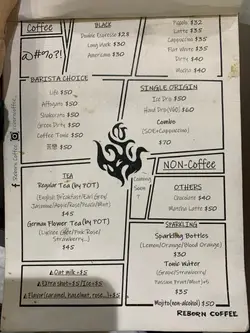 Coffee
@#%?!
BLACK
Double Espresso $28
Long Black $30
Americano $30
Piccolo $32
Latte $35
Cappuccino $35
Flat White $35
Dirty $40
Mocha $40
BARISTA CHOICE
Life $50
Affogato $50
Shakerato $50
Green Dirty $50
Coffee Tonic $50
$50
SINGLE ORIGIN
Ice Drip $50
Hand Drip(V60) $60
Combo
(SOE+Cappuccino)
$70
Reborn Coffee
NON-Coffee
Coming
Soon
TEA
Regular Tea(by POT)
(English Breakfast/Earl Grey/
Jasmine/Apple/Rose/Peach/Mint)
$45
German Flower Tea(by POT)
(Lychee /Pink Rose/
Strawberry...)
$45
OTHERS
Chocolate $40
Matcha Latte $50
SPARKLING
Sparkling Bottles
(Lemon/Orange/Blood Orange)
$30
Tonic Water
(Grape/Strawberry/
Passion Fruit/Mint)
$35
Mojito(non-alcohol) $50
△ Oat milk +$5
△ Extra shot+$5/Ice+$5
△ Flavor(caramel, hazelnut, rose...)+$5
REBORN COFFEE